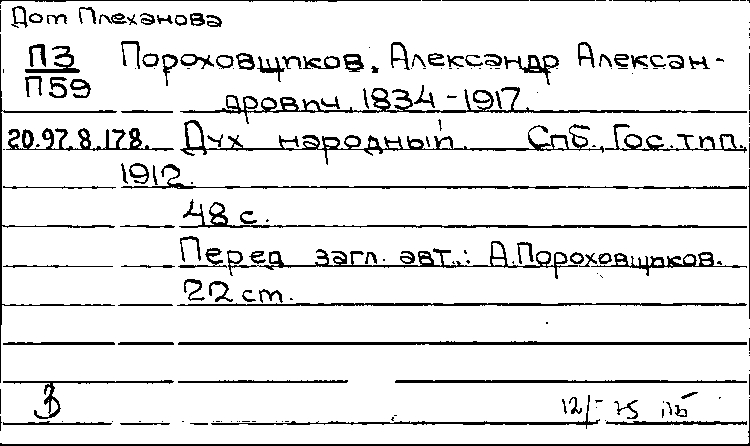 Дом Плеханова
П3 Пороховщиков, Александр Алексан-
П59 дрович, 1834-1917.
20.97.8.178. Дух народный. Спб., Гос. тип.,
1912.
48 с.
Перед загл. авт.: А.Пороховщиков.
22 cm.
З 12/I-75